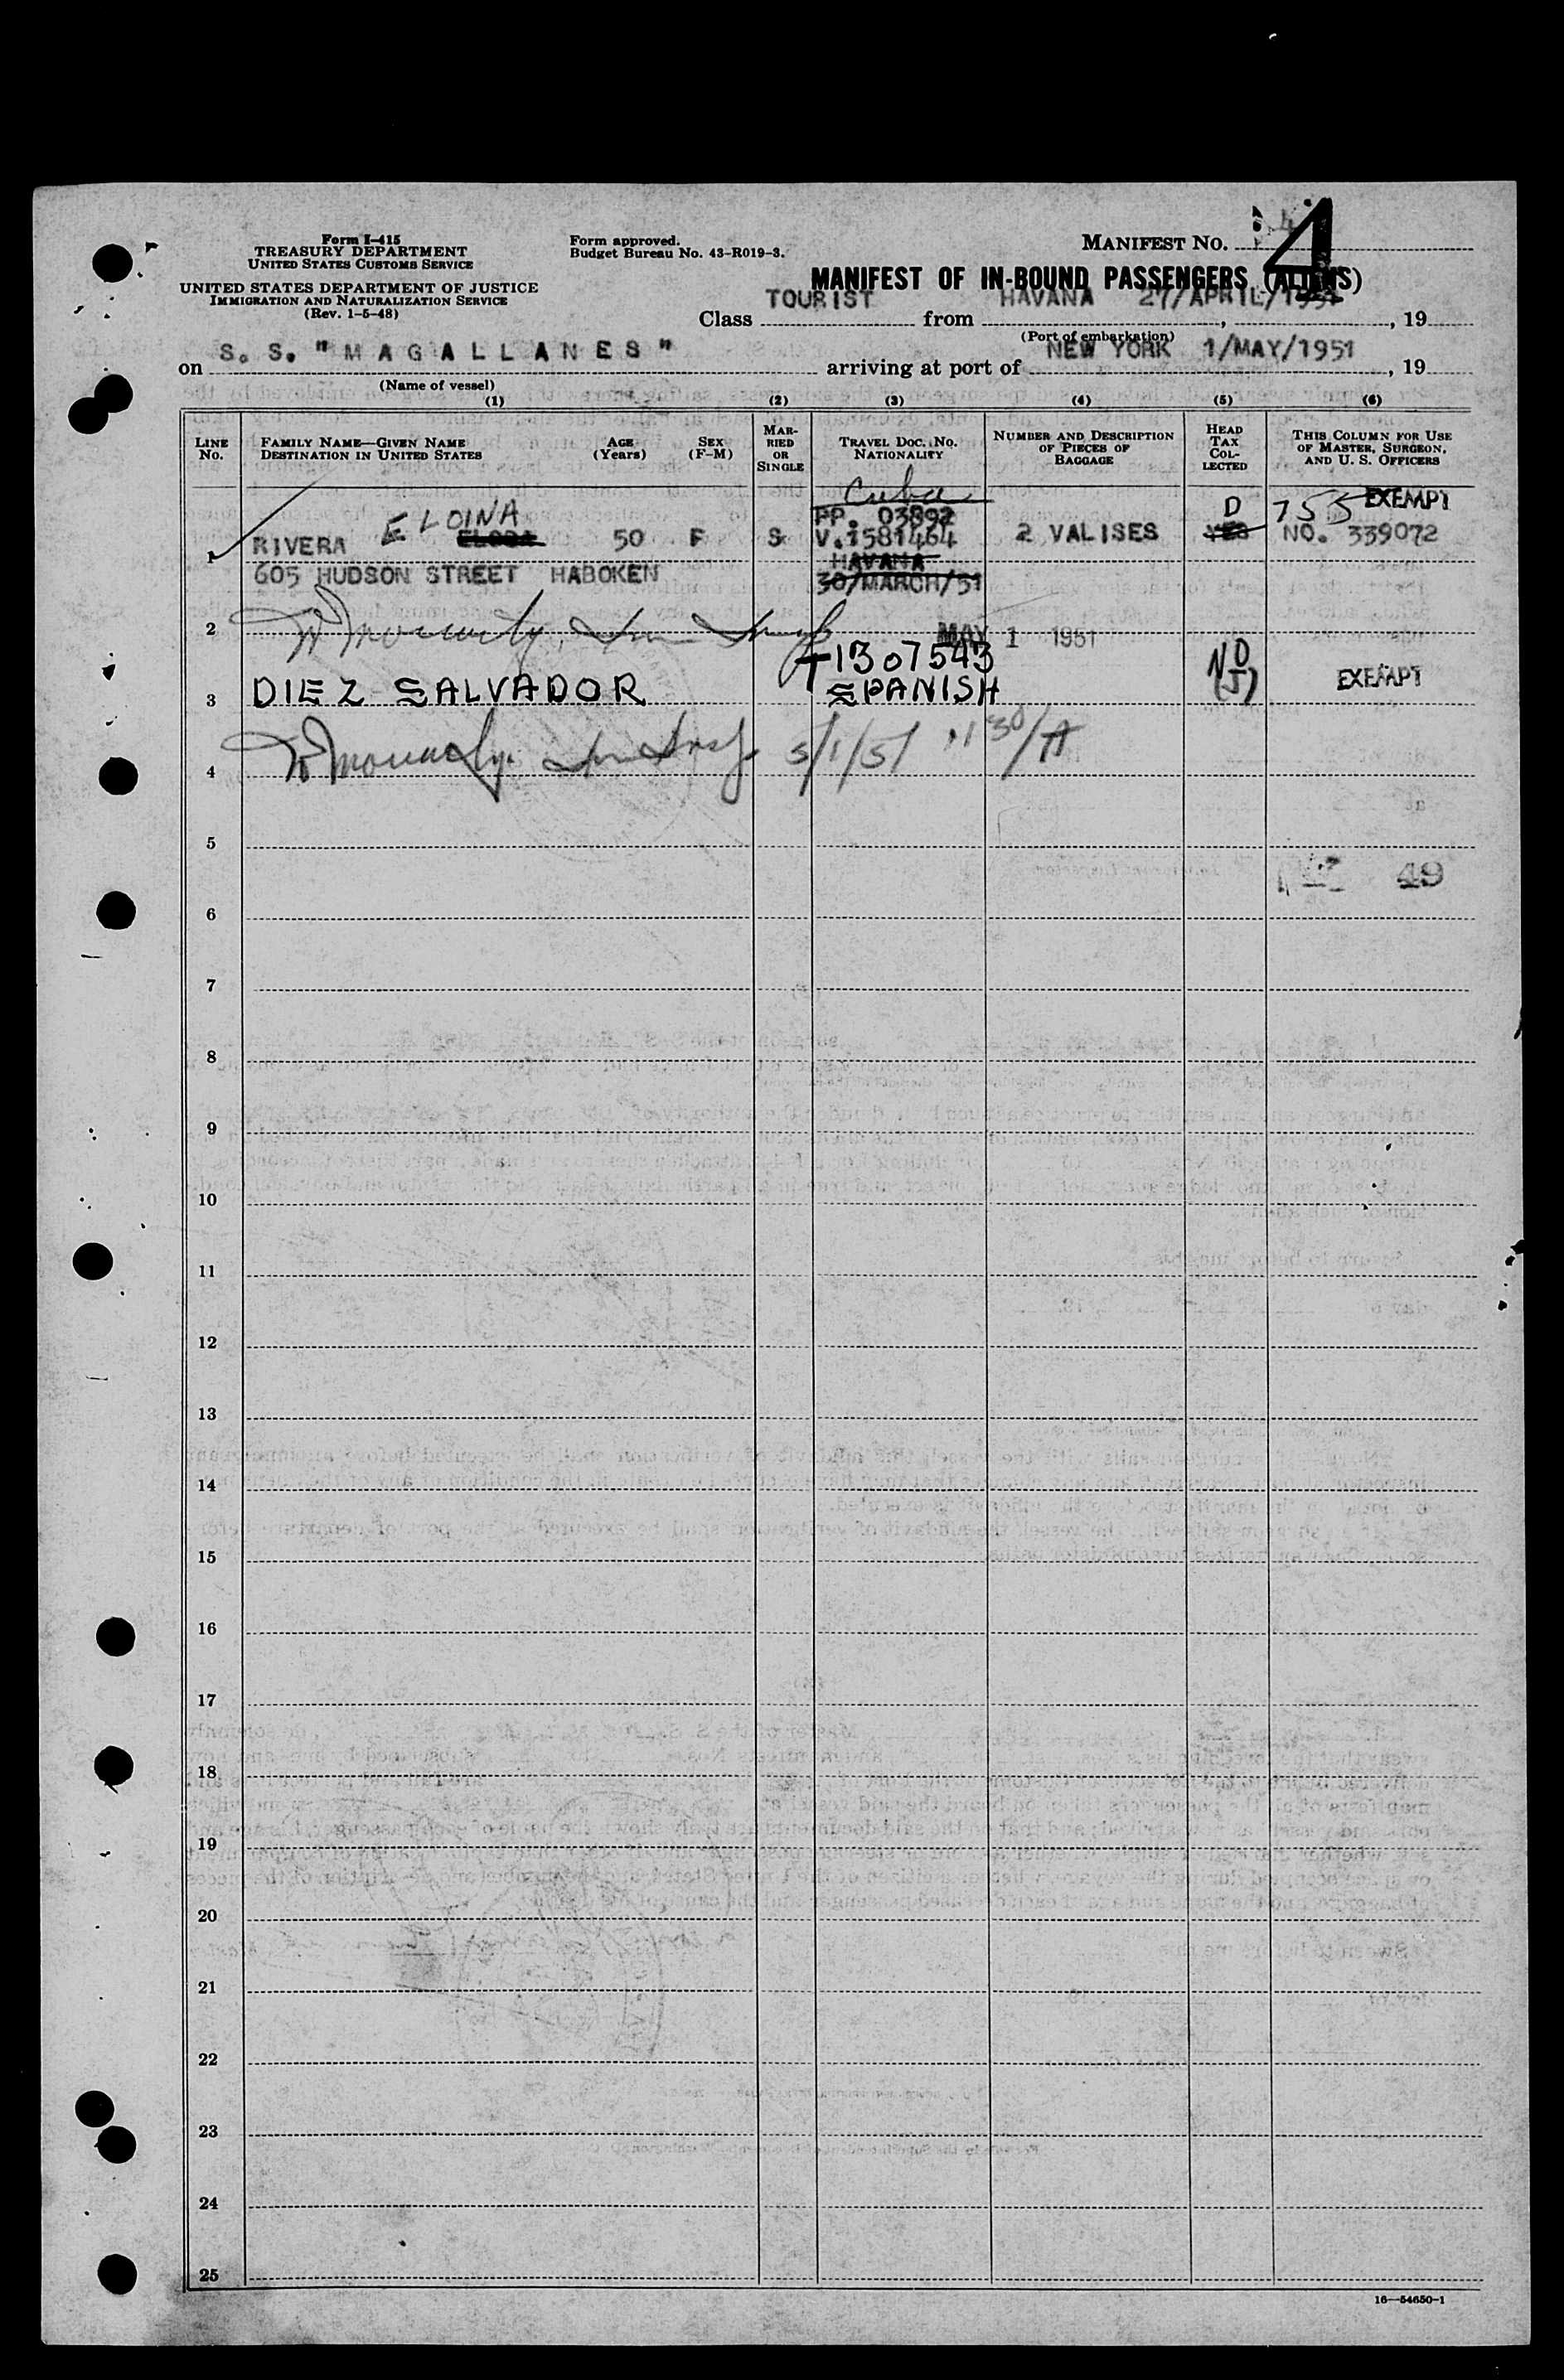 Form I-415
TREASURY DEPARTMENT
UNITED STATES CUSTOMS SERVICE
UNITED STATES DEPARTMENT OF JUSTICE
IMMIGRATION AND NATURALIZATION SERVICE
(Rev. 1-5-48)
Form approved.
Budget Bureau No. 43-R019-3.
MANIFEST No. 4
MANIFEST OF IN-BOUND PASSENGERS (ALIENS)
Class TOURIST from HAVANA 27/APRIL/1951, 19
(Port of embarkation)
on S. S. "MAGALLANES" arriving at port of NEW YORK 1/MAY/1951, 19
(Name of vessel)
(1) (2) (3) (4) (5) (6)
LINE No.
FAMILY NAME—GIVEN NAME DESTINATION IN UNITED STATES
AGE (Years)
SEX (F-M)
MARRIED OR SINGLE
TRAVEL DOC. NO. NATIONALITY
NUMBER AND DESCRIPTION OF PIECES OF BAGGAGE
HEAD TAX COLLECTED
THIS COLUMN FOR USE OF MASTER, SURGEON, AND U. S. OFFICERS
Cuba
PP. 03892 D EXEMPT
1 RIVERA ELOINA 50 F S V.1581464 2 VALISES YES NO. 339072
HAVANA
605 HUDSON STREET HABOKEN 30/MARCH/51
2 MAY 1 1951
T1307543
3 DIEZ SALVADOR SPANISH ND (J) EXEMPT
4 5/1/51 1130/A
5
49
6
7
8
9
10
11
12
13
14
15
16
17
18
19
20
21
22
23
24
25
16—54650-1